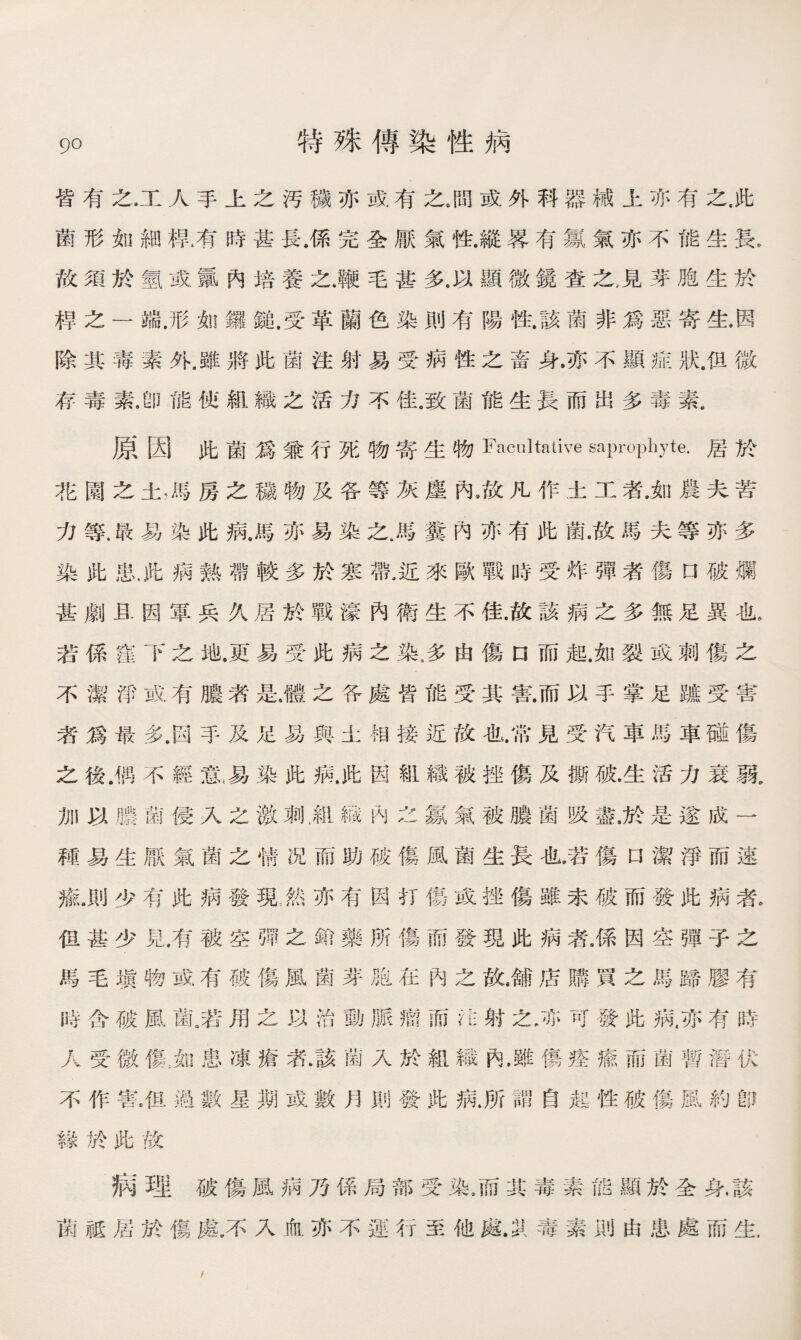 90
特殊傳染性病
皆有之.工人手上之汚穢亦或有之.間或外科器械上亦有之.此
菌形如細桿.有時甚長.係完全厭氣性.縱畧有氱氣亦不能生長.
故須於氫或氮內培養之.鞭毛甚多.以顯微鏡查之.見芽胞生於
桿之一端.形如鑼鎚.受革蘭色染則有陽性.該菌非爲惡寄生.因
除其毒素外.雖將此菌注射易受病性之畜身.亦不顯症狀.但微
存毒素.卽能使組織之活力不佳.致菌能生長而出多毒素.
原因 此菌爲兼行死物寄生物 Facultative saprophyte. 居於
花園之土,馬房之穢物及各等灰塵內.故凡作土工者.如農夫苦
力等.最易染此病.馬亦易染之.馬糞內亦有此菌.故馬夫等亦多
染此患.此病熱帶較多於寒帶.近來歐戰時受炸彈者傷口破爛
甚劇且因軍兵久居於戰濠內衛生不佳.故該病之多無足異也.
若係窪下之地.更易受此病之染.多由傷口而起.如裂或刺傷之
不潔淨或有膿者是.體之各處皆能受其害.而以手掌足蹠受害
者爲最多.因手及足易與土相接近故也.常見受汽車馬車碰傷
之後.偶不經意.易染此病.此因組織被挫傷及撕破.生活力衰弱.
加以膿菌侵入之激刺.組織內之氱氣被膿菌吸盡.於是遂成一
種易生厭氣菌之情况而助破傷風菌生長也.若傷口潔淨而速
瘉.則少有此病發現.然亦有因打傷或挫傷雖未破而發此病者.
但甚少見.有被空彈之鎗藥所傷而發現此病者.係因空彈子之
馬毛塡物或有破傷風菌芽胞在內之故.舖店購買之馬蹄膠有
時含破風菌.若用之以治動脈瘤而注射之.亦可發此病.亦有時
人受微傷.如患凍瘡者.該菌入於組織內.雖傷痊瘉而菌暫潛伏
不作害.但過數星期或數月則發此病.所謂自起性破傷風約卽
緣於此故
病理 破傷風病乃係局部受染.而其毒素能顯於全身.該
菌祗居於傷處.不入血亦不運行至他處.其毒素則由患處而生.